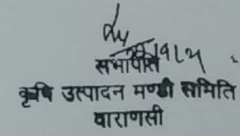 सभापति
कृषि उत्पादन मण्डी समिति
वाराणसी